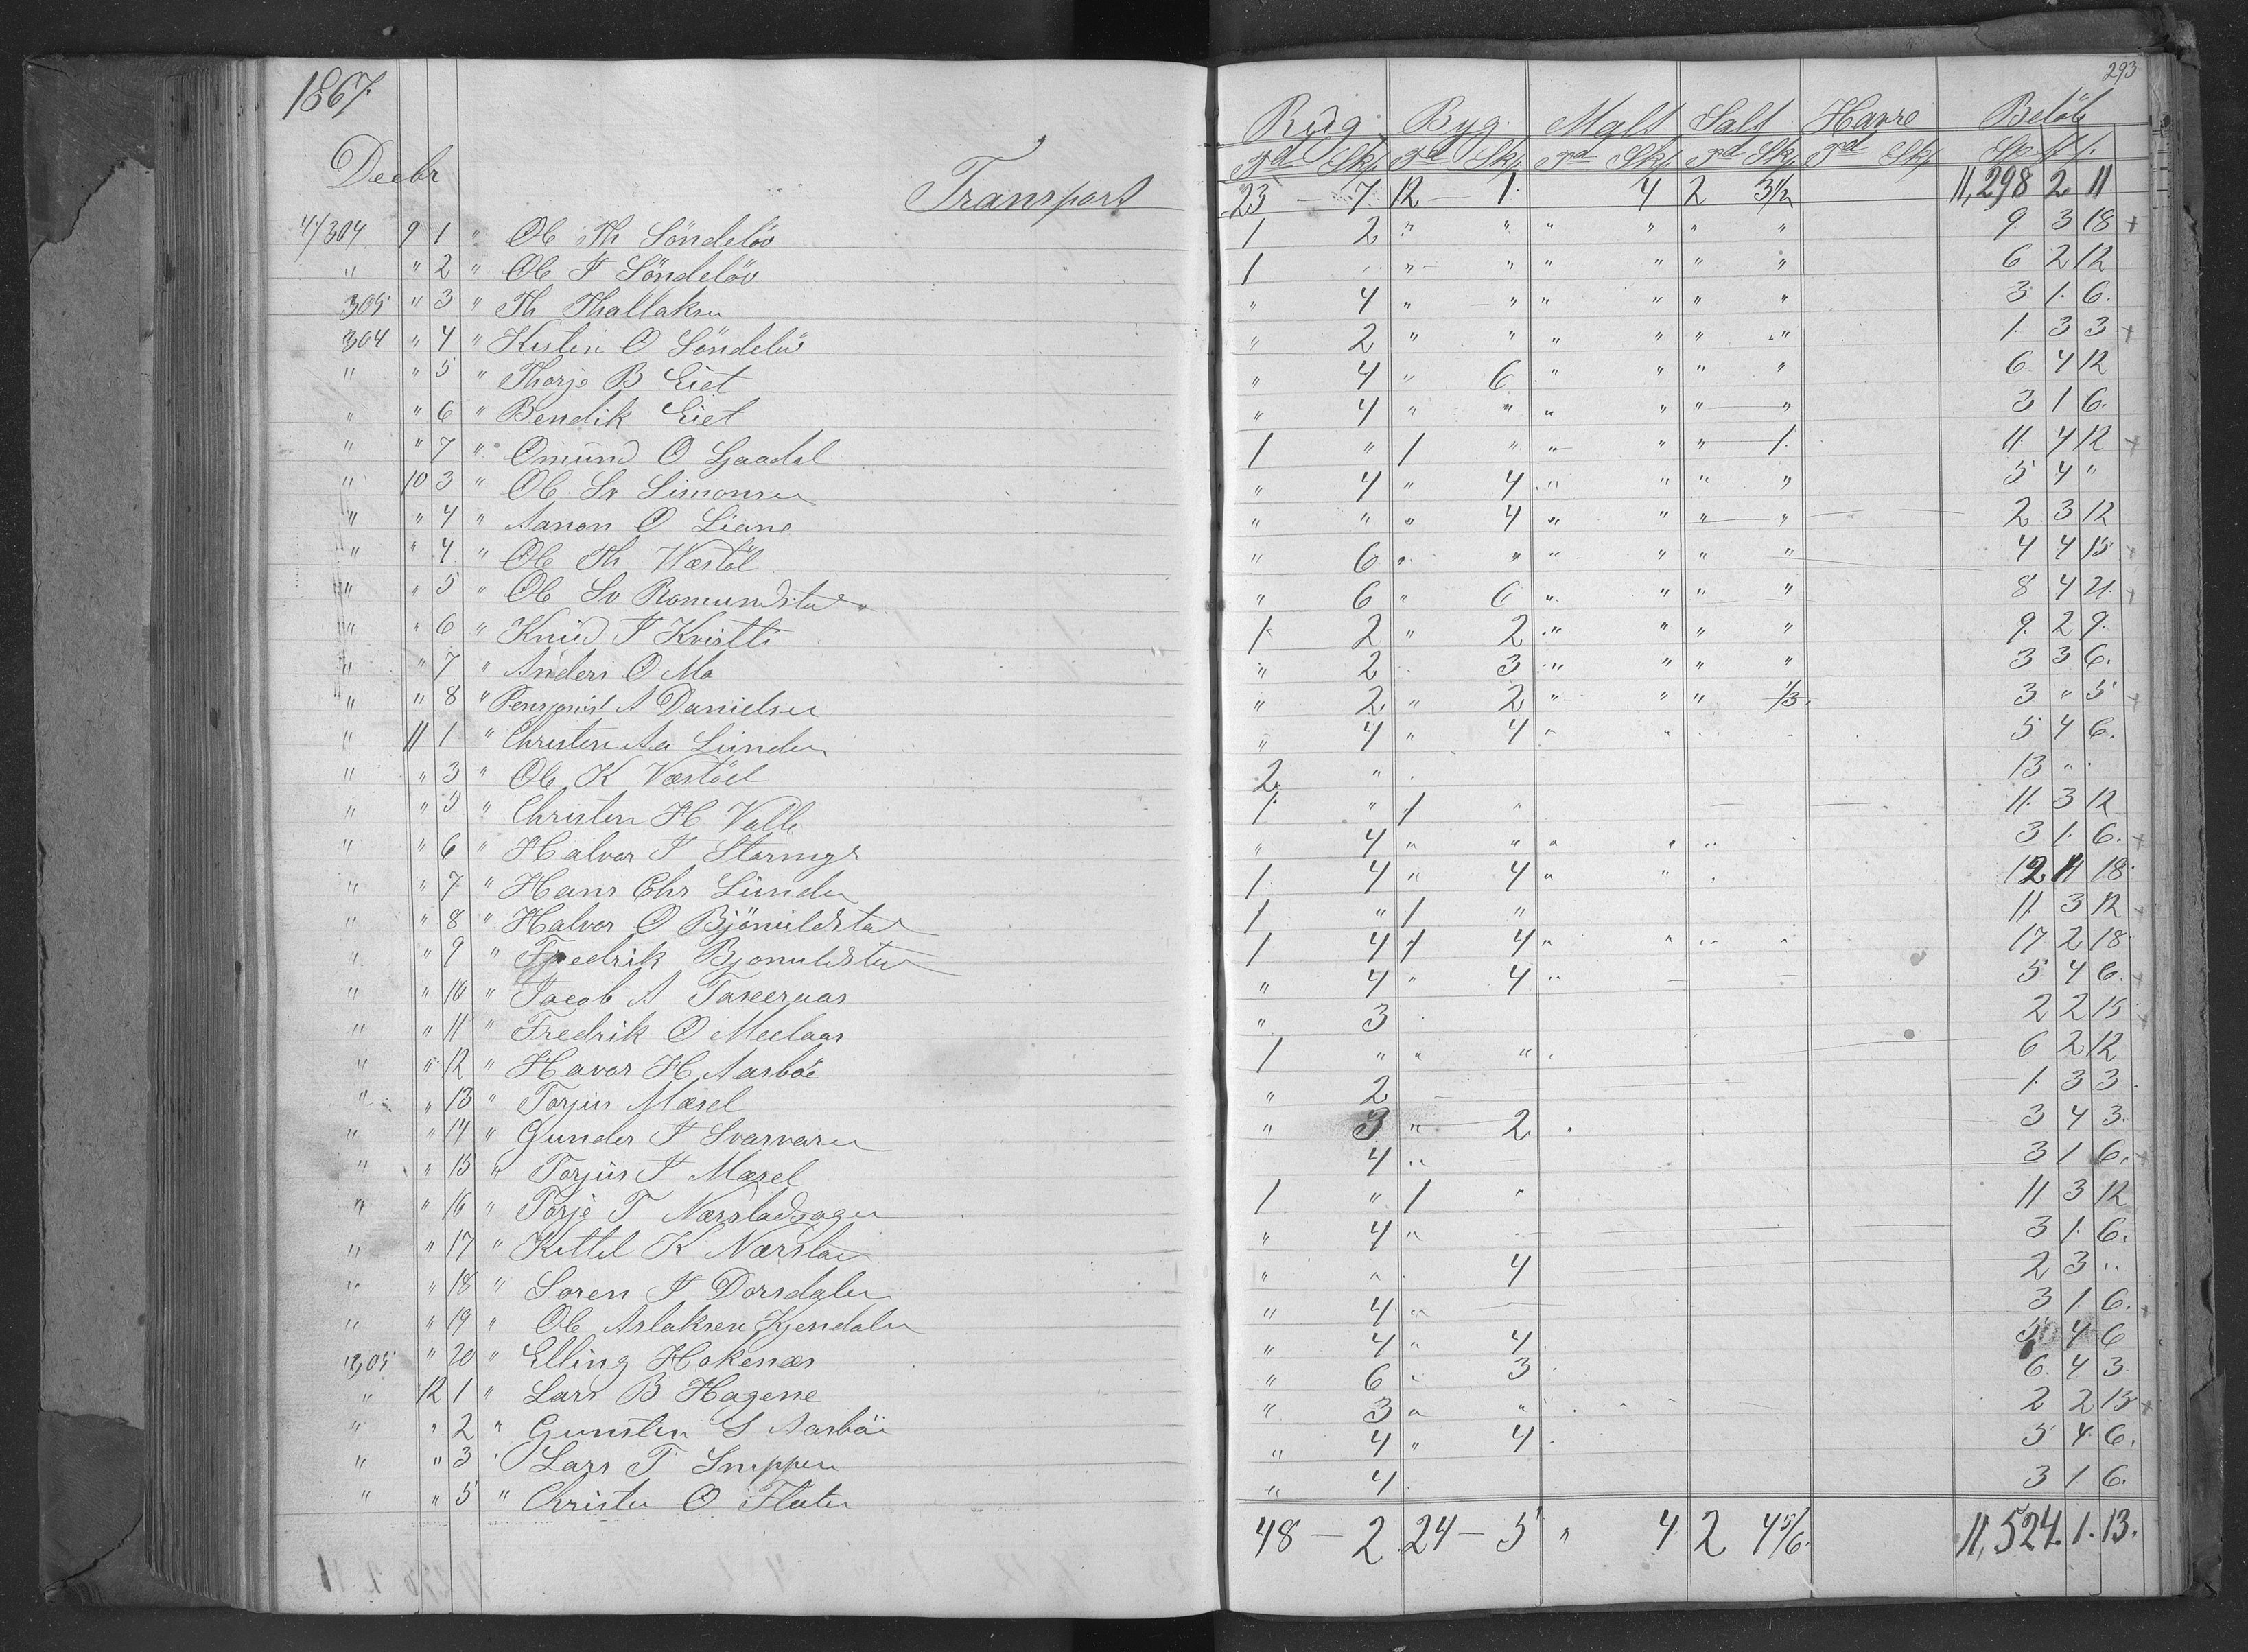 293
1867.
Rug Byg. Malt Salt Havre Beløb
Td Skp Td Skp Td Skp Td Skp Td Skp Sp
Decbr Transport 23 — 7 12 — 1. 4 2 3½ 11,298 2 11
4/304 9 1 " Ole Th Söndelöv 1 2 " " " " " " 9. 3 18 +
" " 2 " Ole T Söndelöv 1 " " " " " " 6 2 12
305 " 3 " Th Thallaksen " 4 " " " " " " 3 1. 6.
304 " 4 " Kisten O Söndelöv " 2 " " " " " " 1. 3 3 +
" " 5 " Thorje B Eiet " 4 " 6 " " " " 6 4 12
" " 6 " Bendik Eiet " 4 " " " " " " 3 1 6.
" " 7 " Omund O Ljaadal 1 " 1 " " " " 1. 11. 4 12 +
" 10 3 " Ole Sv Simonsen " 4 " 4 " " " " 5 4 "
" " 4 " Aanon O Liane " " " 4 " " " " 2 3 12
" " 4 " Ole Th Wæstöl " 6 " " " " " " 4 4 15 +
" " 5 " Ole Sv Romundstad " 6 " 6 " " " " 8 4 21. +
" " 6 " Knud T Kvistli 1. 2 " 2 " " " " 9. 2 9.
" " 7 " Anders O Mo " 2 3 " " " " 3 3 6.
" " 8 " Pensjonist A Danielsen " 2 " 2 " " " 1/3. 3 " 5 +
" 11 1 " Christen Aa Lunden " 4 " 4 " " 5 4 6.
" " 3 " Ole K Væstöel 2 " 13 "
" " 5 " Christen H Valle 1. " 1 " 11. 3 12
" " 6 " Halvor T Stormyr " 4 " " " " " 3 1. 6. +
" " 7 " Hans Chr Lunden 1. 4 " 4 " " 12 4 18.
" " 8 " Halvor O Bjönuldstad 1 " 1 " 11. 3 12 +
" " 9 " Fredrik Bjonuldstad 1 4 1 4 " " " " 17 2 18
" " 10 " Jacob A Taxeraas " 4 " 4 " 5 4 6. +
" " 11 " Fredrik O Meelaas " 3 2 2 15 +
" " 12 " Havor H Aasböe 1 " " " 6 2 12
" " 13 " Torjus Mæsel " 2 1. 3 3
" " 14 " Gunder T Svarvaren " 3 " 2 3 4 3.
" " 15 " Torjus T Mæsel 4 " 3 1 6. +
" " 16 " Torje T Næsladhagen 1 " 1 " 11 3 12
" " 17 " Kittel K Næristad " 4 " 3 1. 6.
" " 18 " Soren T Dorsdalen " " 4 2 3 "
" " 19 " Ole Aslaksen Kjendalen " 4 " 3 1. 6. +
305 " 20 " Elling Hokenæs " 4 " 4 5 4 6
" 12 1 " Lars B Hagene " 6 3 6 4 3
" " 2 " Gunsten S Aasböe " 3 " " 2 2 15 +
" " 3 " Lars T Snippen " 4 " 4 5 4 6.
" " 5 " Christen O Flaten " 4 3 1 6.
48 — 2 24 — 5 " 4 2 4 5/6. 11,524. 1. 13.